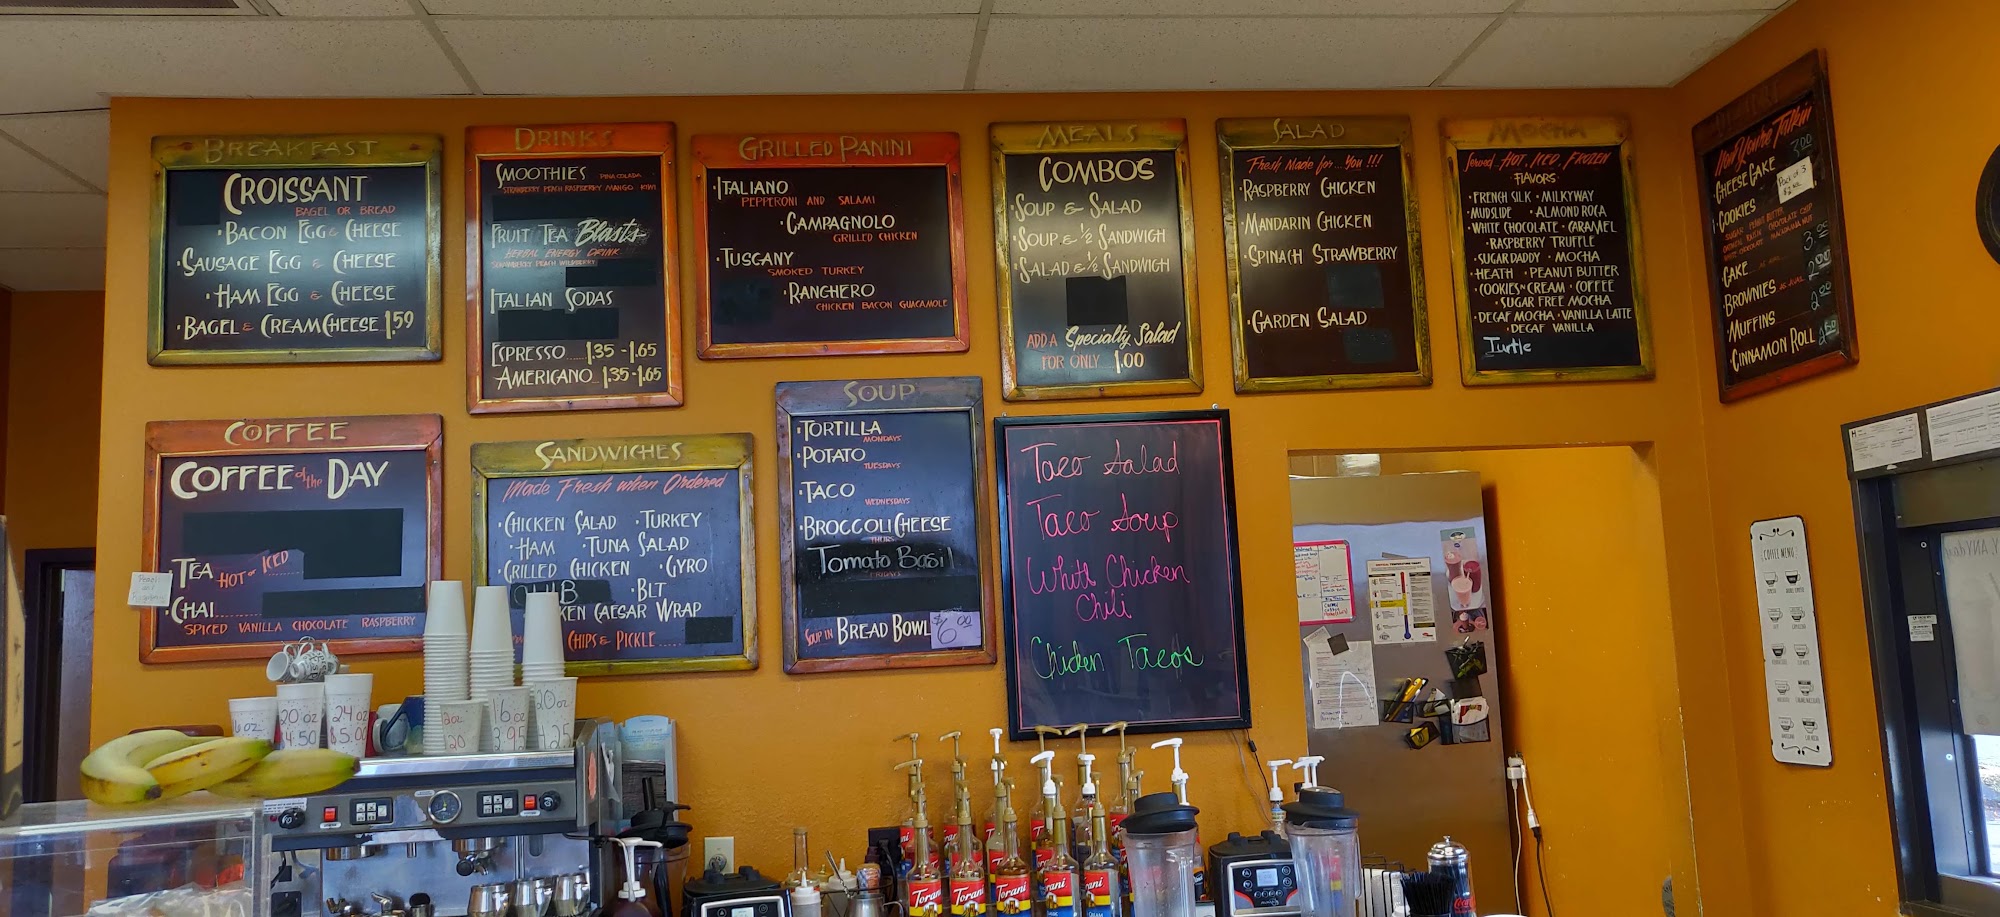 BREAKFAST
CROISSANT
BAGEL OR BREAD
•BACON EGG & CHEESE
•SAUSAGE EGG & CHEESE
•HAM EGG & CHEESE
•BAGEL & CREAM CHEESE 1.59
DRINKS
SMOOTHIES PINA COLADA
STRAWBERRY PEACH RASPBERRY MANGO KIWI
FRUIT TEA Blasts
HERBAL ENERGY DRINK
STRAWBERRY PEACH WILDBERRY
ITALIAN SODAS
ESPRESSO......1.35 - 1.65
AMERICANO..1.35 - 1.65
GRILLED PANINI
•ITALIANO
PEPPERONI AND SALAMI
•CAMPAGNOLO
GRILLED CHICKEN
•TUSCANY
SMOKED TURKEY
•RANCHERO
CHICKEN BACON GUACAMOLE
MEALS
COMBO'S
•SOUP & SALAD
•SOUP & ½ SANDWICH
•SALAD & ½ SANDWICH
ADD A Specialty Salad
FOR ONLY...1.00
SALAD
Fresh Made for...You !!!
•RASPBERRY CHICKEN
•MANDARIN CHICKEN
•SPINACH STRAWBERRY
•GARDEN SALAD
MOCHA
Served...HOT, ICED, FROZEN
FLAVORS
•FRENCH SILK •MILKYWAY
•MUDSLIDE •ALMOND ROCA
•WHITE CHOCOLATE •CARAMEL
•RASPBERRY TRUFFLE
•SUGAR DADDY •MOCHA
•HEATH •PEANUT BUTTER
•COOKIES-N-CREAM •COFFEE
•SUGAR FREE MOCHA
•DECAF MOCHA •VANILLA LATTE
•DECAF VANILLA
Turtle
Now You're Talkin'
•CHEESECAKE 3.00
•COOKIES
Pack of 3
SUGAR PEANUT BUTTER
CHOCOLATE CHIP
WHITE CHOCOLATE MACADAMIA NUT
•CAKE 3.00
•BROWNIES 2.00
•MUFFINS 2.00
•CINNAMON ROLL
COFFEE
COFFEE of the DAY
TEA HOT or ICED
CHAI
SPICED VANILLA CHOCOLATE RASPBERRY
SANDWICHES
Made Fresh when Ordered
•CHICKEN SALAD •TURKEY
•HAM •TUNA SALAD
•GRILLED CHICKEN •GYRO
•BLT
KEN CAESAR WRAP
CHIPS & PICKLE
SOUP
•TORTILLA
MONDAYS
•POTATO
TUESDAYS
•TACO
WEDNESDAYS
•BROCCOLI CHEESE
THURS
Tomato Basil
FRIDAYS
SOUP IN BREAD BOWL $6.00
Taco Salad
Taco Soup
White Chicken
Chili
Chicken Tacos
COFFEE MENU
16 oz
20 oz
$4.50
24 oz
$5.00
12 oz
16 oz
3.95
20 oz
4.25
Torani
Torani
Torani
Torani